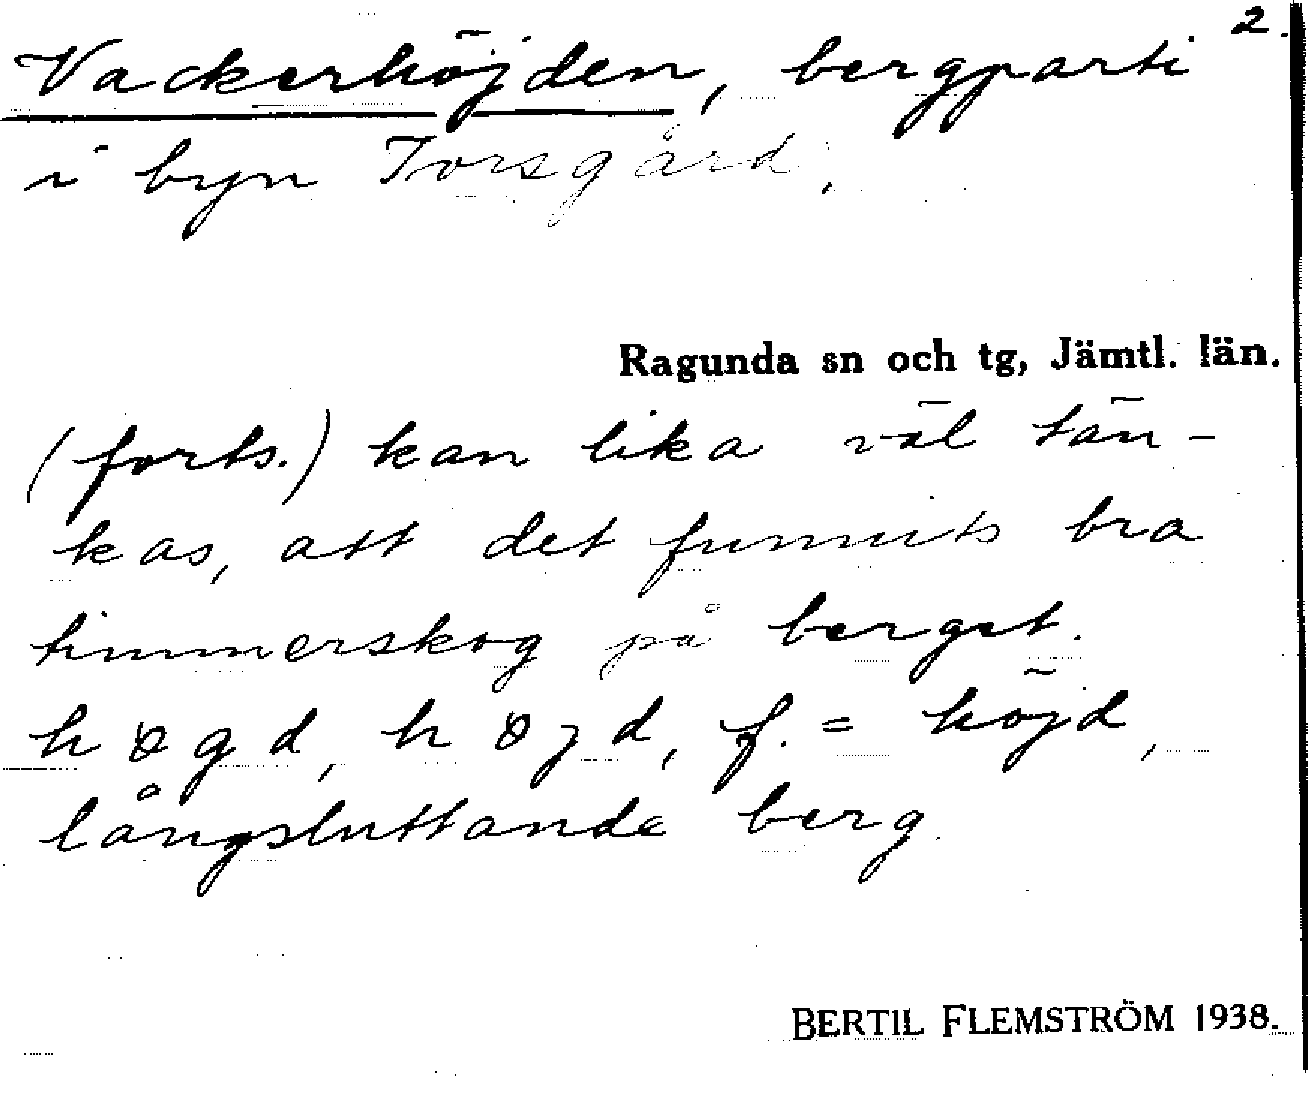 2.
Vackerhöjden, bergparti
i byn Torsgård.
Ragunda sn och tg, Jämtl. län.
(forts.) kan lika väl tän-
kas, att det funnits bra
timmerskog på berget.
høgd, højd, f. = höjd,
långsluttande berg.
BERTIL FLEMSTRÖM 1938.